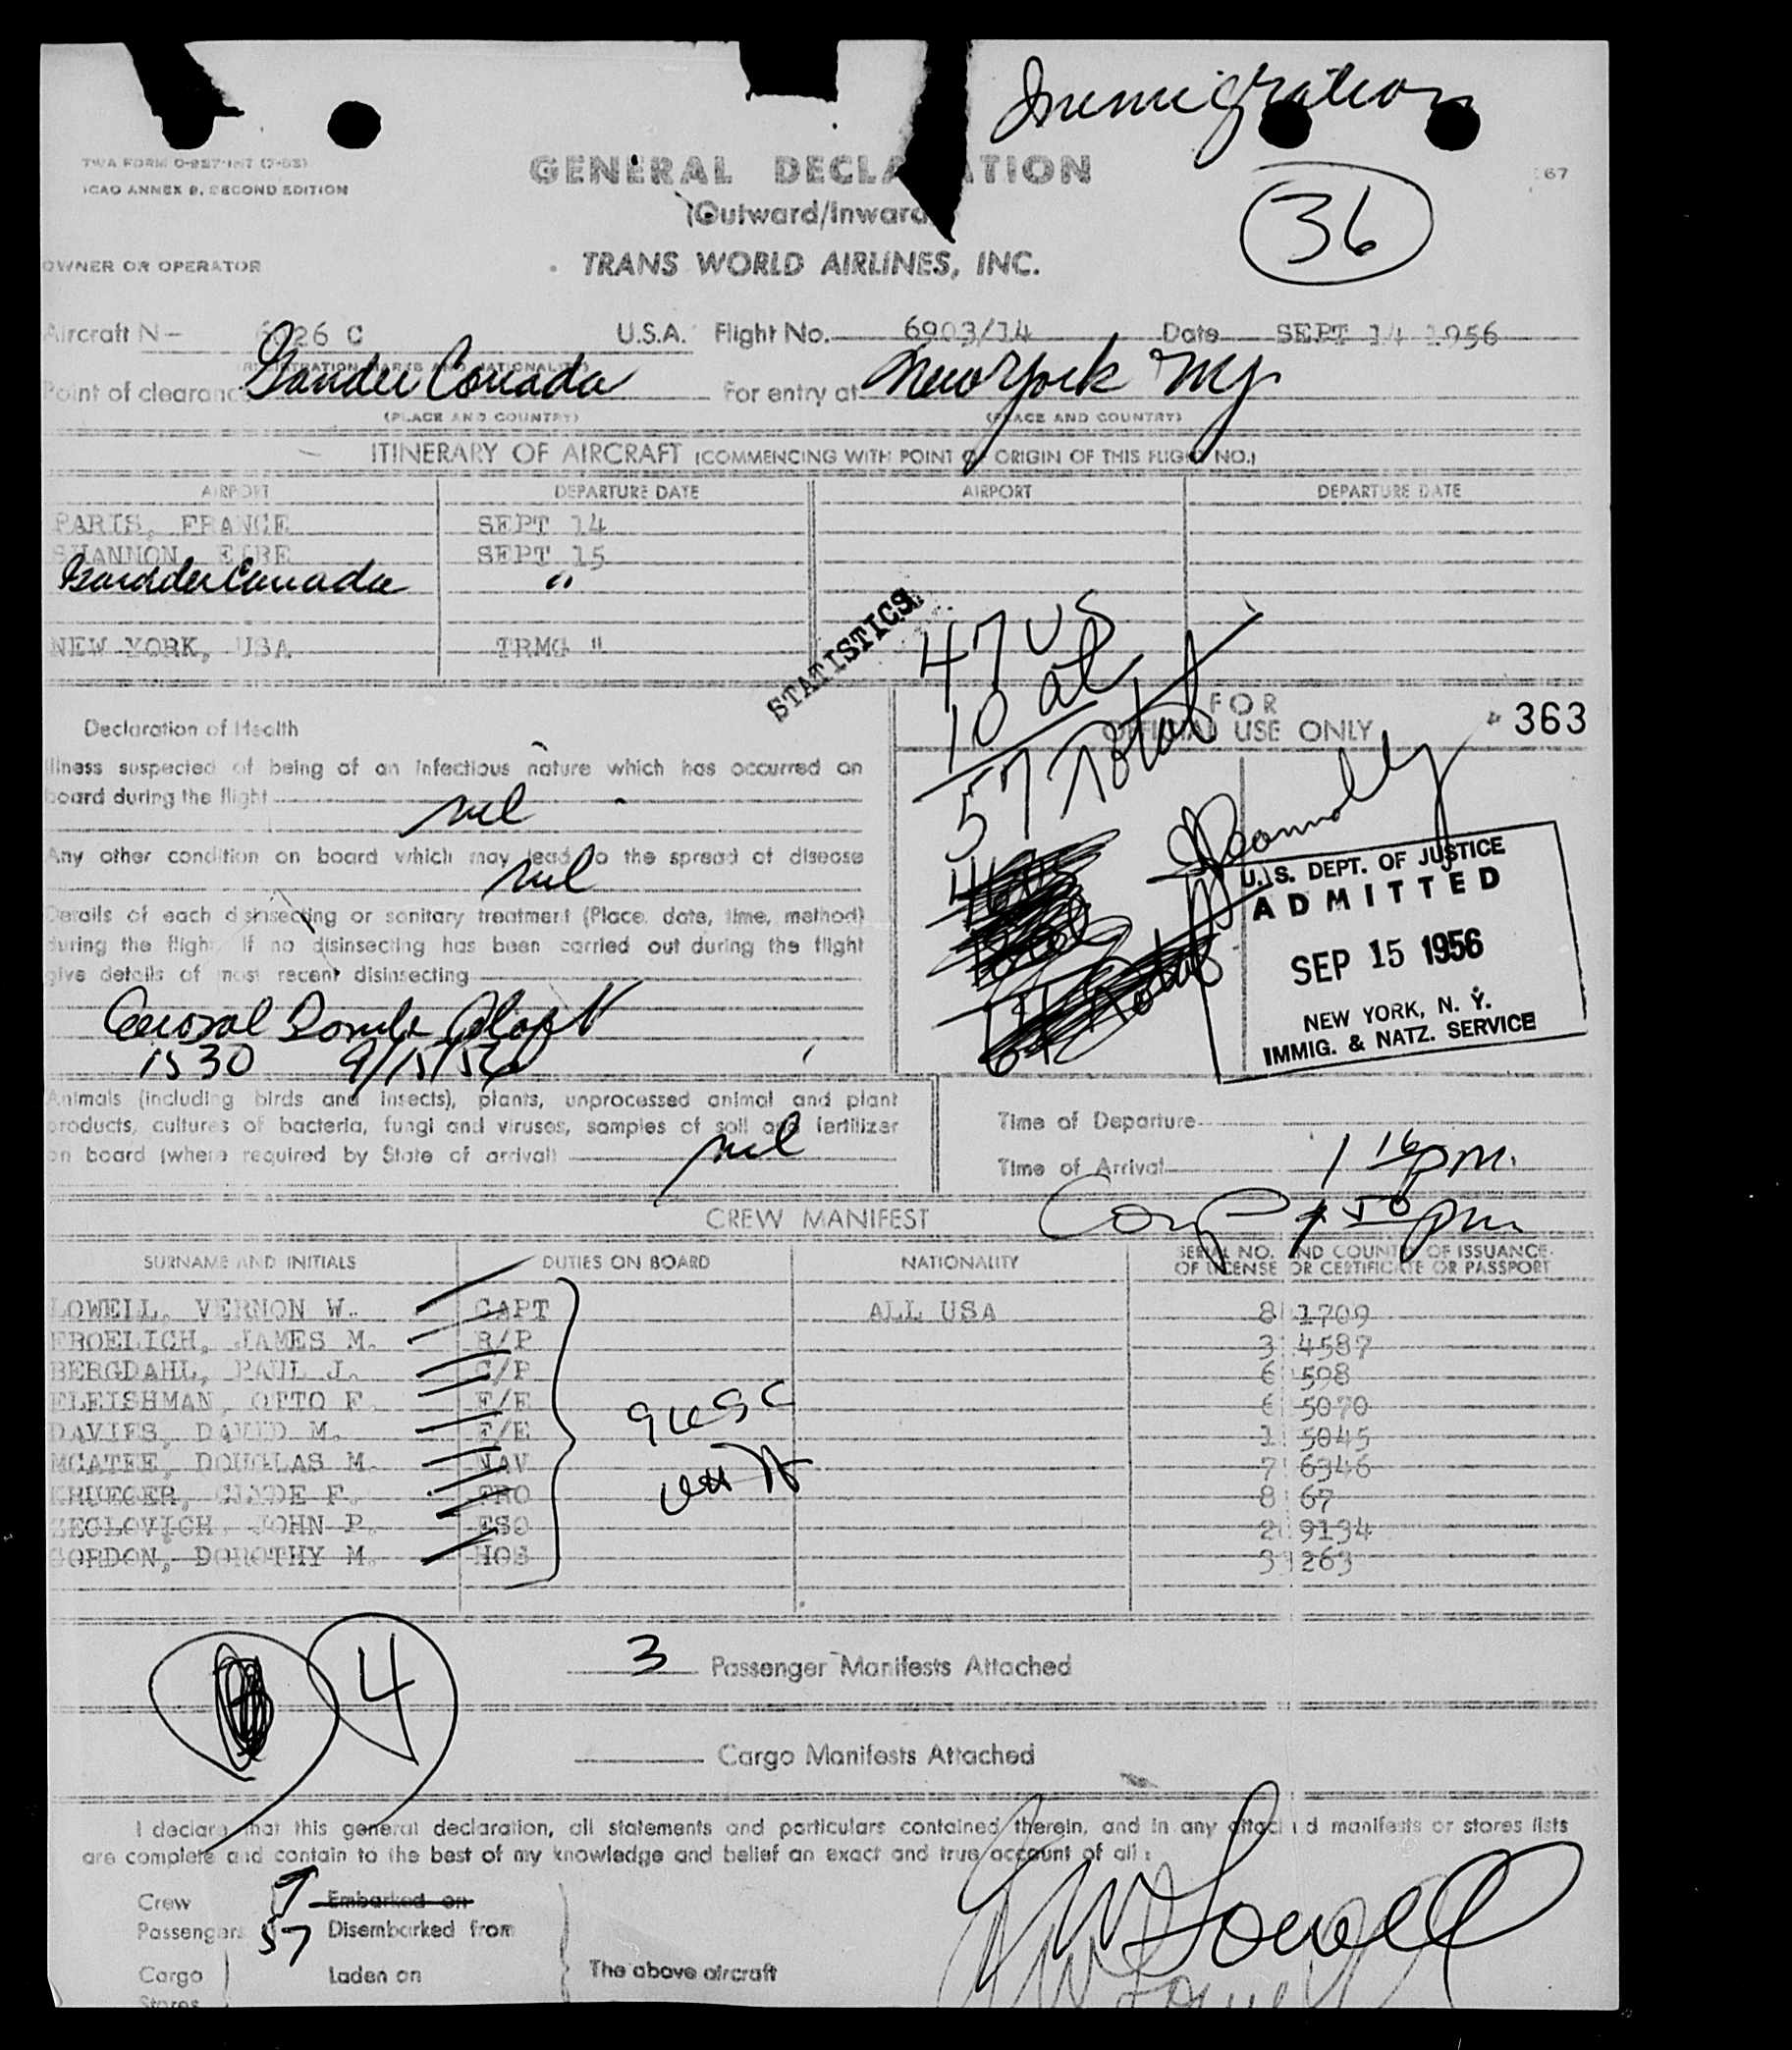 Immigration
TWA FORM O-957-INT (7-55)
ICAO ANNEX 9, SECOND EDITION
GENERAL DECLA ATION
67
(Outward/Inward
36
OWNER OR OPERATOR
TRANS WORLD AIRLINES, INC.
Aircraft N- 6 26 C U.S.A. Flight No. 6903/14 Date SEPT 14 1956
Point of clearance Gander Canada For entry at New York NY
(PLACE AND COUNTRY) (PLACE AND COUNTRY)
ITINERARY OF AIRCRAFT (COMMENCING WITH POINT OF ORIGIN OF THIS FLIGHT NO.)
AIRPORT DEPARTURE DATE AIRPORT DEPARTURE DATE
PARIS, FRANCE SEPT 14
SHANNON, EIRE SEPT 15
Gander Canada "
NEW YORK, USA TRMG "
STATISTICS
47 US
10 al
57 Total
FOR
OFFICIAL USE ONLY
363
Declaration of Health
Illness suspected of being of an infectious nature which has occurred on
board during the flight nil
Any other condition on board which may lead to the spread of disease
nil
Details of each disinsecting or sanitary treatment (Place, date, time, method)
during the flight. If no disinsecting has been carried out during the flight
give details of most recent disinsecting
Aerosol Bomb Aloft
1530 9/15/56
U.S. DEPT. OF JUSTICE
ADMITTED
SEP 15 1956
NEW YORK, N. Y.
IMMIG. & NATZ. SERVICE
Animals (including birds and insects), plants, unprocessed animal and plant
products, cultures of bacteria, fungi and viruses, samples of soil and fertilizer
on board (where required by State of arrival) nil
Time of Departure
Time of Arrival 1 16 pm.
Comp 1 50 pm
CREW MANIFEST
SURNAME AND INITIALS DUTIES ON BOARD NATIONALITY SERIAL NO. AND COUNTRY OF ISSUANCE
OF LICENSE OR CERTIFICATE OR PASSPORT
LOWELL, VERNON W. CAPT ALL USA 8 1709
FROELICH, JAMES M. R/P 3 4587
BERGDAHL, PAUL J. C/P 6 598
FLEISHMAN, OTTO F. F/E 6 5070
DAVIES, DAVID M. F/E 1 5045
MCATEE, DOUGLAS M. NAV 7 6346
KRUEGER, CLYDE F. FRO 8 67
ZEGLOVICH, JOHN P. FSO 2 9134
GORDON, DOROTHY M. HOS 3 263
9 USC
4
3 Passenger Manifests Attached
Cargo Manifests Attached
I declare that this general declaration, all statements and particulars contained therein, and in any attached manifests or stores lists
are complete and contain to the best of my knowledge and belief an exact and true account of all:
Crew 9 Embarked on
Passengers 57 Disembarked from
Cargo Laden on The above aircraft
Stores
VW Lowell
VW Lowell